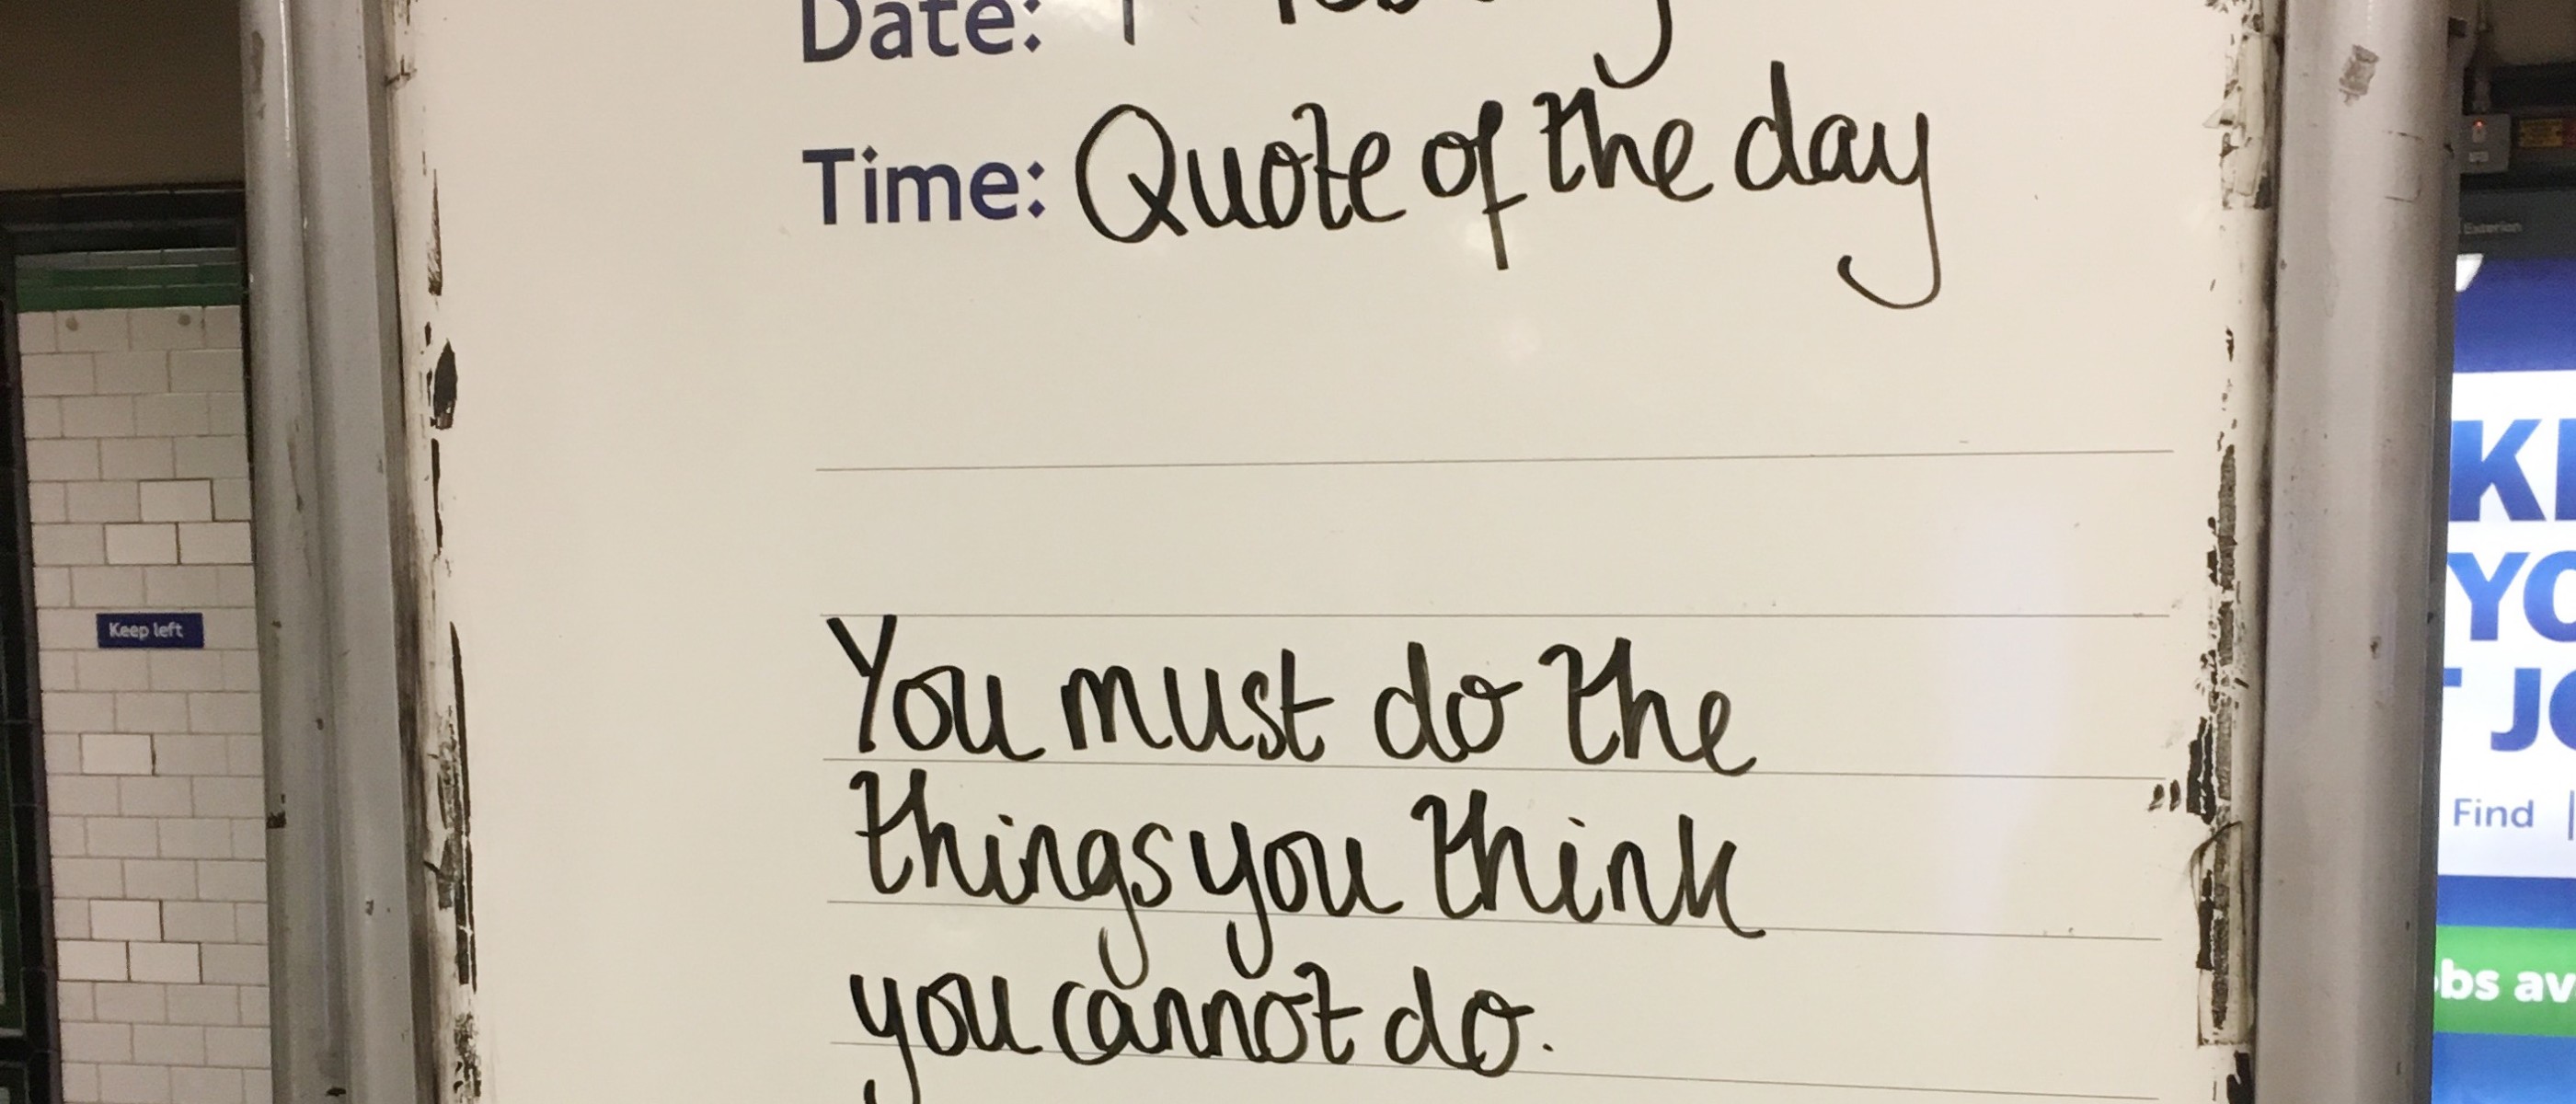 Date:
Time: Quote of the day
You must do the
things you think
you cannot do.
Keep left
Exterion
KE
YO
JO
Find
bs av